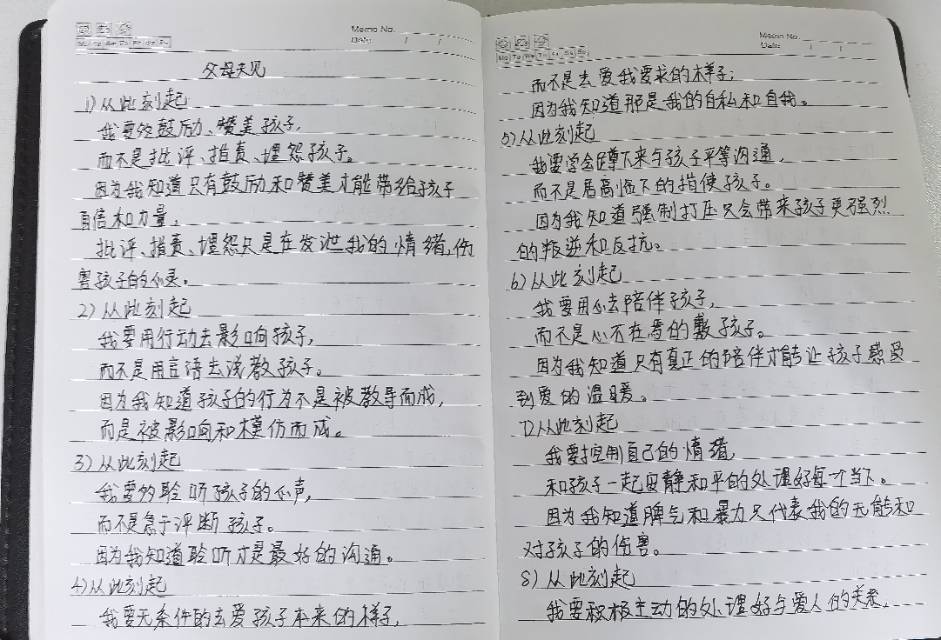 Memo No.
Date / /
Mo Tu We Th Fr Sa Su
父母天见
1) 从此刻起
我要多鼓励、赞美孩子,
而不是批评、指责、埋怨孩子。
因为我知道只有鼓励和赞美才能带给孩子
自信和力量。
批评、指责、埋怨只是在发泄我的情绪,伤
害孩子的心灵。
2) 从此刻起
我要用行动去影响孩子,
而不是用言语去说教孩子。
因为我知道孩子的行为不是被教导而成,
而是被影响和模仿而成。
3) 从此刻起
我要多聆听孩子的心声,
而不是急于评断孩子。
因为我知道聆听才是最好的沟通。
4) 从此刻起
我要无条件的去爱孩子本来的样子,
Memo No.
Date / /
Mo Tu We Th Fr Sa Su
而不是去爱我要求的样子;
因为我知道那是我的自私和自我。
5) 从此刻起
我要学会蹲下来与孩子平等沟通,
而不是居高临下的指使孩子。
因为我知道强制打压只会带来孩子更强烈
的叛逆和反抗。
6) 从此刻起
我要用心去陪伴孩子,
而不是心不在焉的敷孩子。
因为我知道只有真正的陪伴才能让孩子感受
到爱的温暖。
7) 从此刻起
我要控制自己的情绪,
和孩子一起安静和平的处理好每一个当下。
因为我知道脾气和暴力只代表我的无能和
对孩子的伤害。
8) 从此刻起
我要积极主动的处理好与爱人的关系,